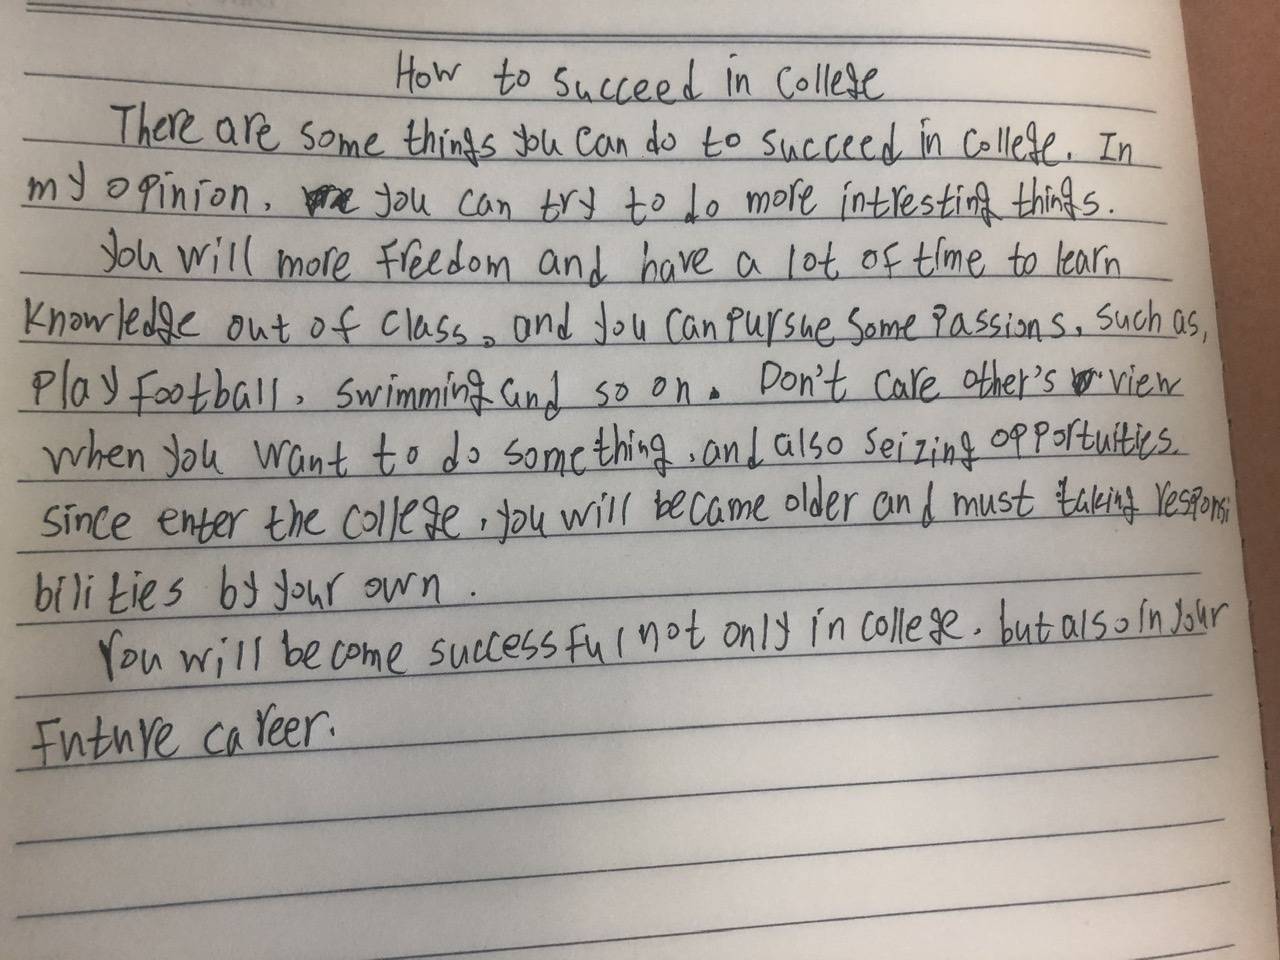 How to succeed in college
There are some things you can do to succeed in college. In
my opinion, you can try to do more intresting things.
you will more freedom and have a lot of time to learn
knowledge out of class, and you can pursue some passions, such as,
play football, swimming and so on. Don't care other's view
when you want to do something, and also seizing opportuities.
since enter the college, you will became older and must taking responsi
bilities by your own.
You will become successful not only in college, but also in your
future career.